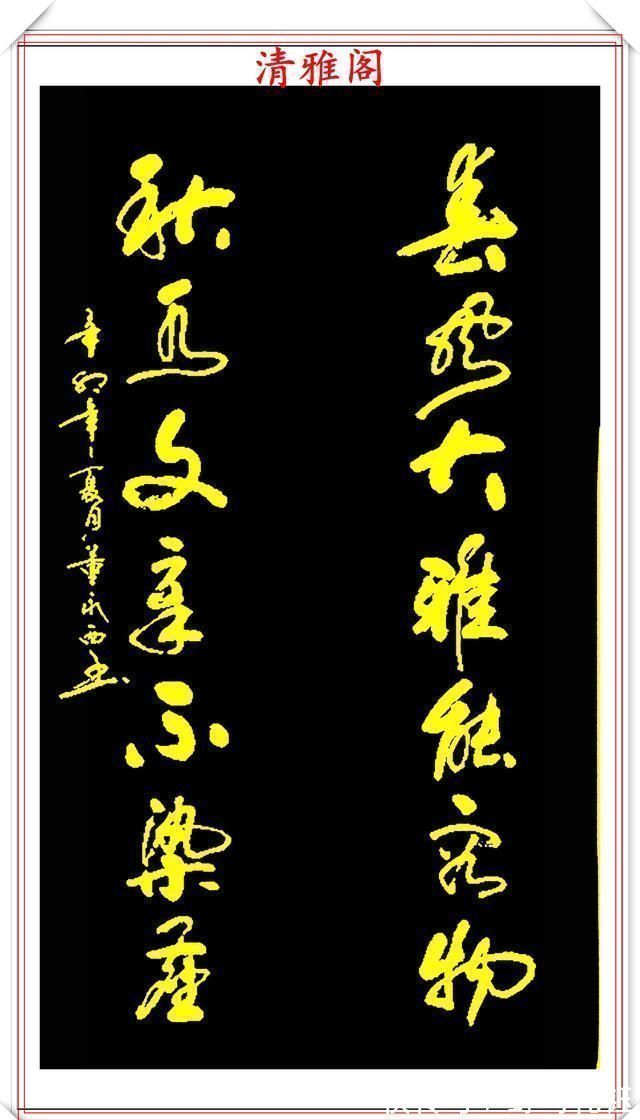 清雅阁
春風大雅能容物
秋水文章不染塵
辛卯年夏月董永西書